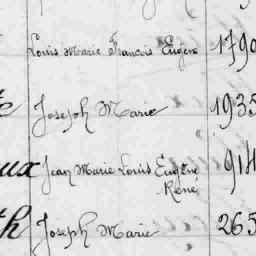 Louis Marie Francois Eugène 1790
Joseph Marie 1935
ux Jean Marie Louis Eugène 914
René
th Joseph Marie 265